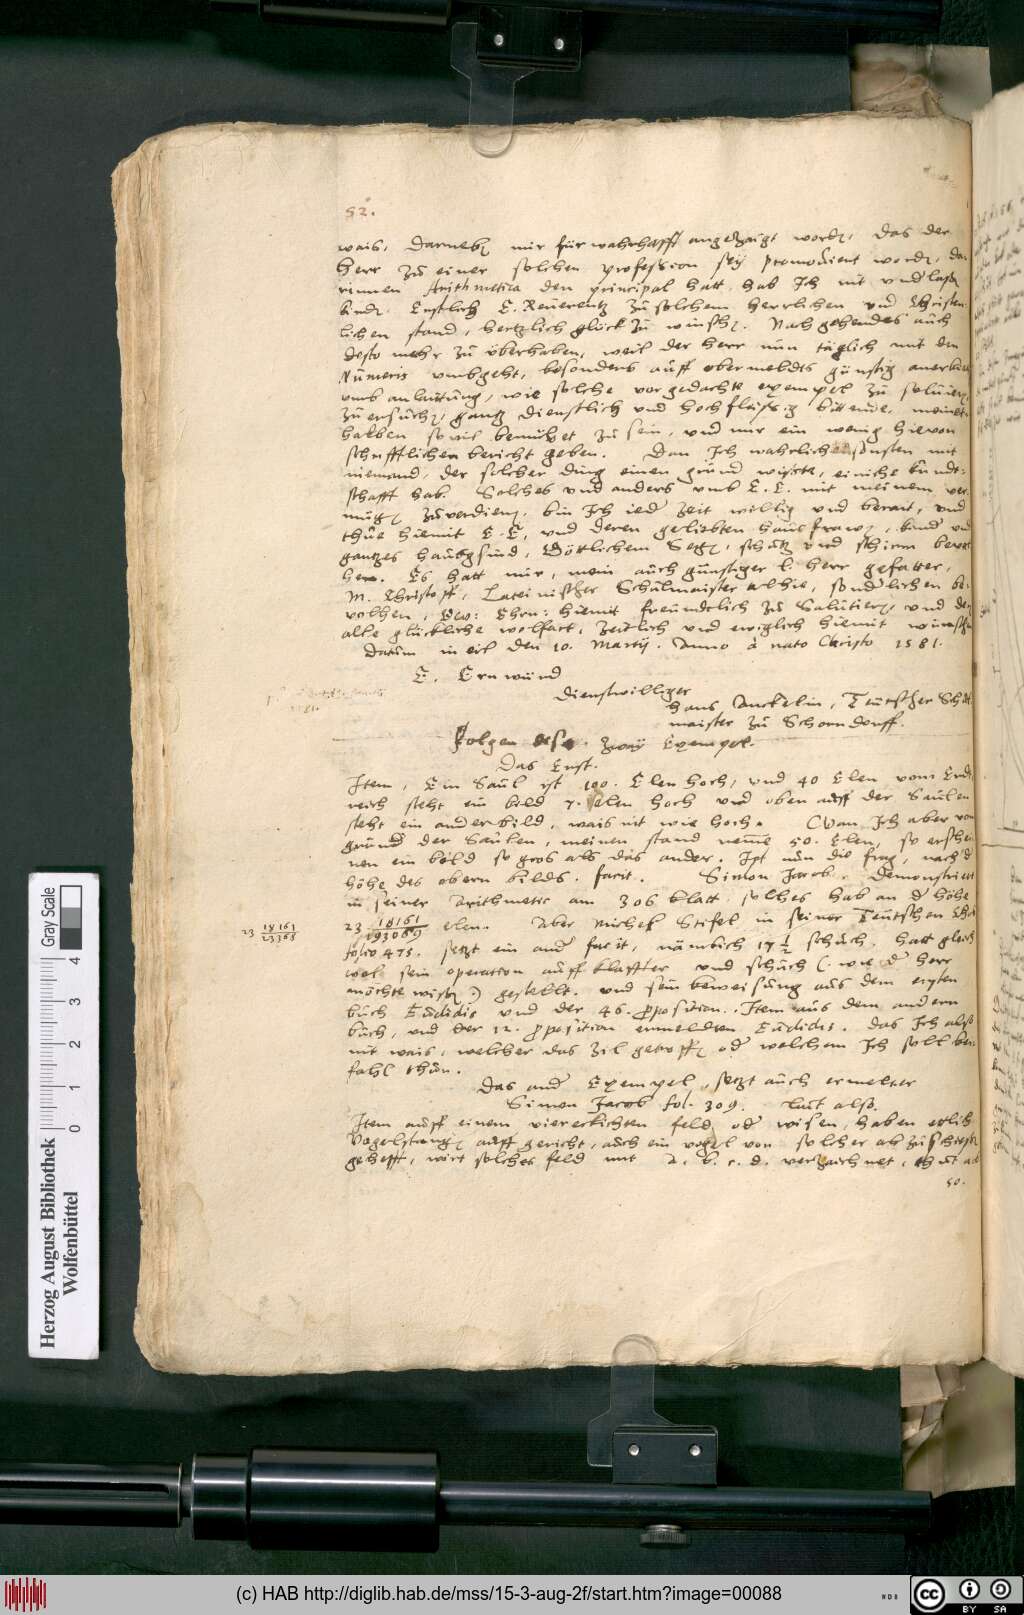 52.
wais, darnebē mir für wahrhafft angezaigt wordē, das der
herr zů einer solchen profession seÿ promouiert wordē, da-
rinnen Arithmetica den principal hatt, hab Ich nit vnderlassē
kindē. Erstlich E. Reuerentz zů solchem herrlichen vnd Christen-
lichen stand, hertzlich glück zů winschē. Nachgehendes auch
desto mehr zů überhaben, weil der herr nun täglich mit den
Numeris vmbgeht, besonders auff obermeldts günstig anerbieten
vmb anlaittung, wie solche vorgedachte exempel zů soluierē,
zů ersůchē, gantz dienstlich vnd hochfleissig bittende, meinet-
halben souil bemühet zů sein, vnd mir ein wenig hieuon
schrifftlichen bericht geben. Dan Ich wahrlich sonsten mit
niemand, der solcher ding einen grund wisste, einiche kundt-
schafft hab. Solches vnd anders vmb E. E. mit meinem ver-
mügē zůuerdienē, bin Ich ieder zeit willig vnd berait, vnd
thůe hiemit E. E. vnd deren geliebten hausfrawē, kinder vnd
gantzes haußgsind, Göttlichem Segē, schutz vnd schirm beuel-
hen. Es hatt mir, mein auch günstiger l. herr gefatter,
M. Christoff, Lateinischer Schůlmaister alhie, sonderlichen be-
uolhen, Ew: Ehrn: hiemit freündtlich zů Salutierē, vnd der
alle glückliche wolfart, zeitlich vnd ewiglich hiemit wünschē
Datum in eil den 10. Martÿ. Anno à nato Christo 1581.
E. Ernwürd
dienstwilliger
Hans Anckelin, Teutscher Schůl
maister zů Schorndorff.
Folgen zwaÿ Exempel.
Das Erst.
Item, Ein Saul ist 100. Elen hoch, vnd 40 Elen vom Erdt
reich steht ein bild 7. elen hoch vnd oben auff der Saulen
steht ein ander bild, wais nit wie hoch. Wan Ich aber vom
grund der Saulen, meinen stand neme 50. Elen, so erschei
nen ein bild so gros als das ander. Ist nun die frag, nach der
höhe des obern bilds. facit. Simon Jacob. demonstriert
in seiner Arithmetic am 306 blatt, solches hab an der höhe
23 18161/793069 elen. Aber Michel Stifel in seiner Teutschen Coß
23 18161/23365
folio 475. setzt ein ander facit, nämblich 17 1/2 schuch. hatt gleich
wol sein operation auff klaffter vnd schůch (wie der herr
möchte wissē) gestellt. vnd sein beweisung aus dem ersten
bůch Euclidis vnd der 46. Proposition. Item aus dem andern
bůch, vnd der 12. proposition Euclidis. das Ich also
nit wais, welcher das zil getroffē oder welchem Ich soll bei-
fahl thůn.
Das ander Exempel, setzt auch ermelter
Simon Jacob fol. 309. laut also.
Item auff einem viereckichten feld oder wisen, haben etlich
Vogelstangē auff gericht, auch ein vogel von solcher abzůschiessē
gehefft, wirt solches feld mit a. b. c. d. verzaichnet, thůt a.b.
50.
Herzog August Bibliothek
Wolfenbüttel
Gray Scale
0 1 2 3 4
(c) HAB http://diglib.hab.de/mss/15-3-aug-2f/start.htm?image=00088
WDB
cc BY SA